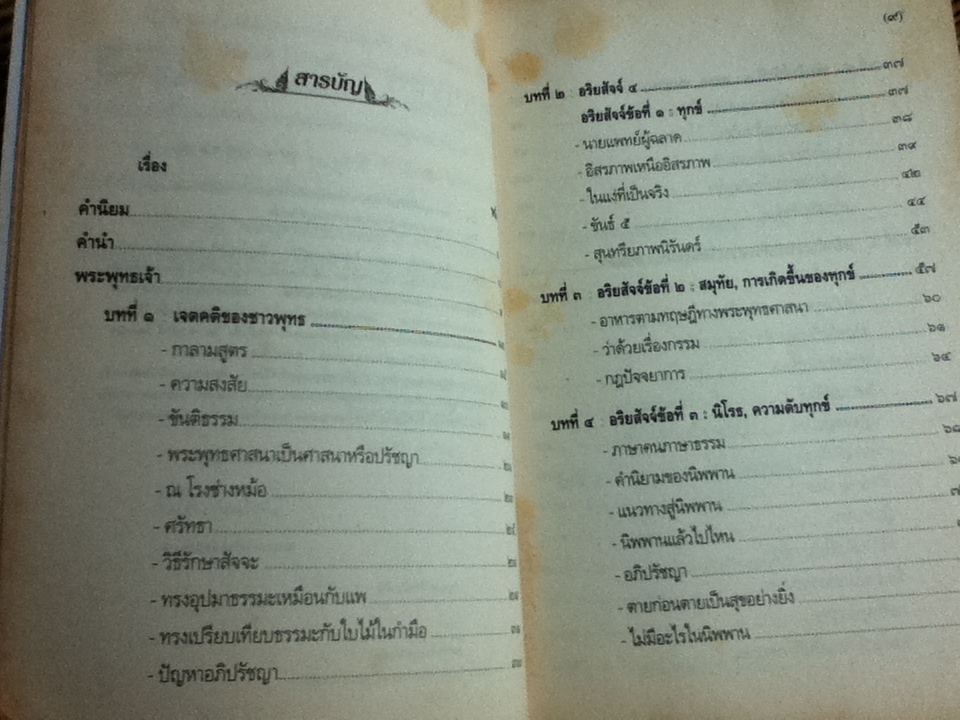 สารบัญ
เรื่อง
คำนิยม
คำนำ
พระพุทธเจ้า
บทที่ ๑ เจตคติของชาวพุทธ
- กาลามสูตร
- ความสงสัย
- ขันติธรรม
- พระพุทธศาสนาเป็นศาสนาหรือปรัชญา
- ณ โรงช่างหม้อ
- ศรัทธา
- วิธีรักษาสัจจะ
- ทรงอุปมาธรรมะเหมือนกับแพ
- ทรงเปรียบเทียบธรรมะกับใบไม้ในกำมือ
- ปัญหาอภิปรัชญา
(๙)
บทที่ ๒ อริยสัจจ์ ๔ ๓๗
อริยสัจจ์ข้อที่ ๑ : ทุกข์ ๓๗
- นายแพทย์ผู้ฉลาด ๓๘
- อิสรภาพเหนืออิสรภาพ ๓๙
- ในแง่ที่เป็นจริง ๔๒
- ขันธ์ ๕ ๔๔
- สุนทรียภาพนิรันดร์ ๕๓
บทที่ ๓ อริยสัจจ์ข้อที่ ๒ : สมุทัย, การเกิดขึ้นของทุกข์ ๕๗
- อาหารตามทฤษฎีทางพระพุทธศาสนา ๖๐
- ว่าด้วยเรื่องกรรม ๖๑
- กฎปัจจยาการ ๖๔
บทที่ ๔ อริยสัจจ์ข้อที่ ๓ : นิโรธ, ความดับทุกข์ ๖๗
- ภาษาคนภาษาธรรม ๖๘
- คำนิยามของนิพพาน
- แนวทางสู่นิพพาน
- นิพพานแล้วไปไหน
- อภิปรัชญา
- ตายก่อนตายเป็นสุขอย่างยิ่ง
- ไม่มีอะไรในนิพพาน